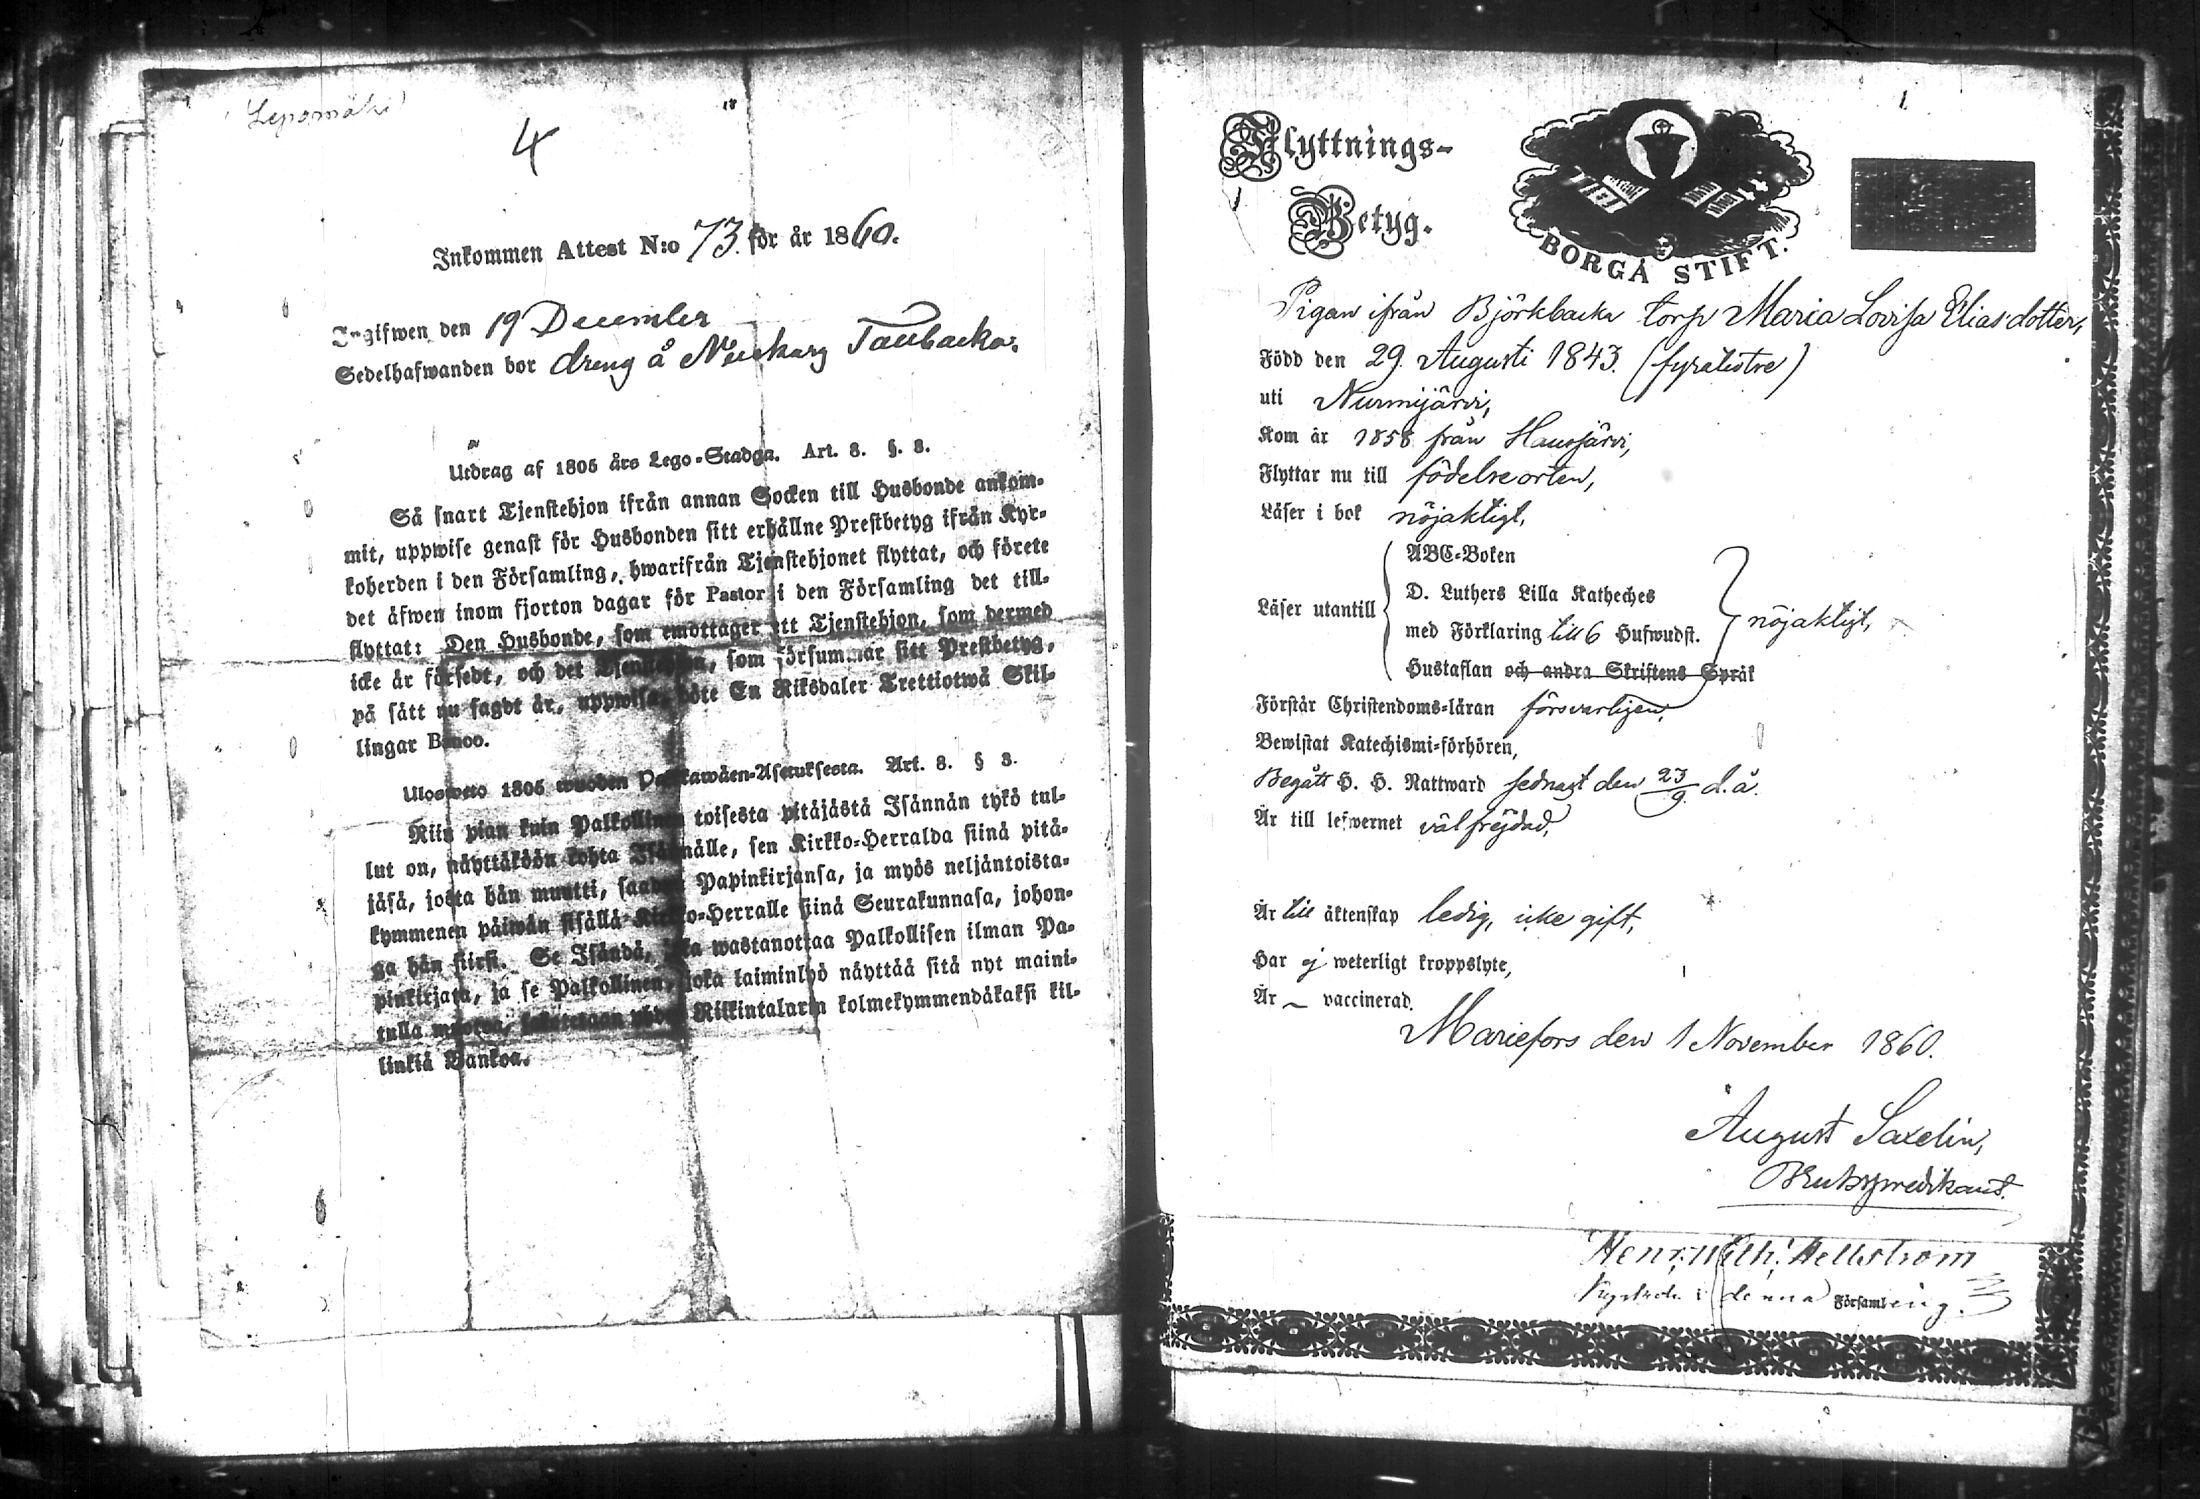 Lepomäki
4
Inkommen Attest N:o 73. för år 1860.
Ingifwen den 19 December
Sedelhafwanden bor dreng å
Utdrag af 1805 års Lego-Stadga. Art. 8. §. 3.
Så snart Tjenstehjon ifrån annan Socken till Husbonde ankom-
mit, uppwise genast för Husbonden sitt erhållne Prestbetyg ifrån Kyr-
koherden i den Församling, hwarifrån Tjenstehjonet flyttat, och förete
det äfwen inom fjorton dagar för Pastor i den Församling det till-
flyttat: Den Husbonde, som emottager ett Tjenstehjon, som dermed
icke är försedt, och det Tjenstehjon, som försummar sitt Prestbetyg,
på sätt nu sagdt är, uppwisa, böte En Riksdaler Trettiotwå Skil-
lingar Banco.
Ulosweto 1805 wuoden Palkkawäen-Asetuksesta. Art. 8. § 3.
Niin pian kuin Palkollinen toisesta pitäjästä Isännän tykö tul-
lut on, näyttäköön kohta Isännälle, sen Kirkko-Herralda siinä pitä-
jäsä, josta hän muutti, saadun Papinkirjansa, ja myös neljäntoista-
kymmenen päiwän sisällä Kirkko-Herralle siinä Seurakunnasa, johon-
ga hän siirsi. Se Isändä, joka wastanottaa Palkollisen ilman Pa-
pinkirjata, ja se Palkollinen, joka laiminlyö näyttää sitä nyt maini-
tulla muotoa, sakotetaan yhden Riikintalarin kolmekymmendäkaksi kil-
linkiä Bankoa.
Flyttnings-
Betyg.
BORGÅ STIFT.
Pigan ifrån Björkbacka torp Maria Lovisa Eliasdotter,
Född den 29. Augusti 1843. (fyratiotre)
uti Nurmijärvi,
Kom år 1858 från Hausjärvi,
Flyttar nu till födelseorten,
Läser i bok nöjaktigt,
Läser utantill
ABC-Boken
D. Luthers Lilla Katheches
med Förklaring till 6 Hufwudst.
Hustaflan och andra Skriftens Språk
nöjaktigt,
Förstår Christendoms-läran försvarligen,
Bewistat Katechismi-förhören,
Begått H. H. Nattward sednast den 23/9 d. å.
Är till lefwernet välfrejdad,
Är till äktenskap ledig, icke gift,
Har ej weterligt kroppslyte,
Är ~ vaccinerad.
Mariefors den 1 November 1860.
August Saxelin,
Brukspredikant.
Henr. Wilh. Hellström
Kyrkoh. i denna Församling.